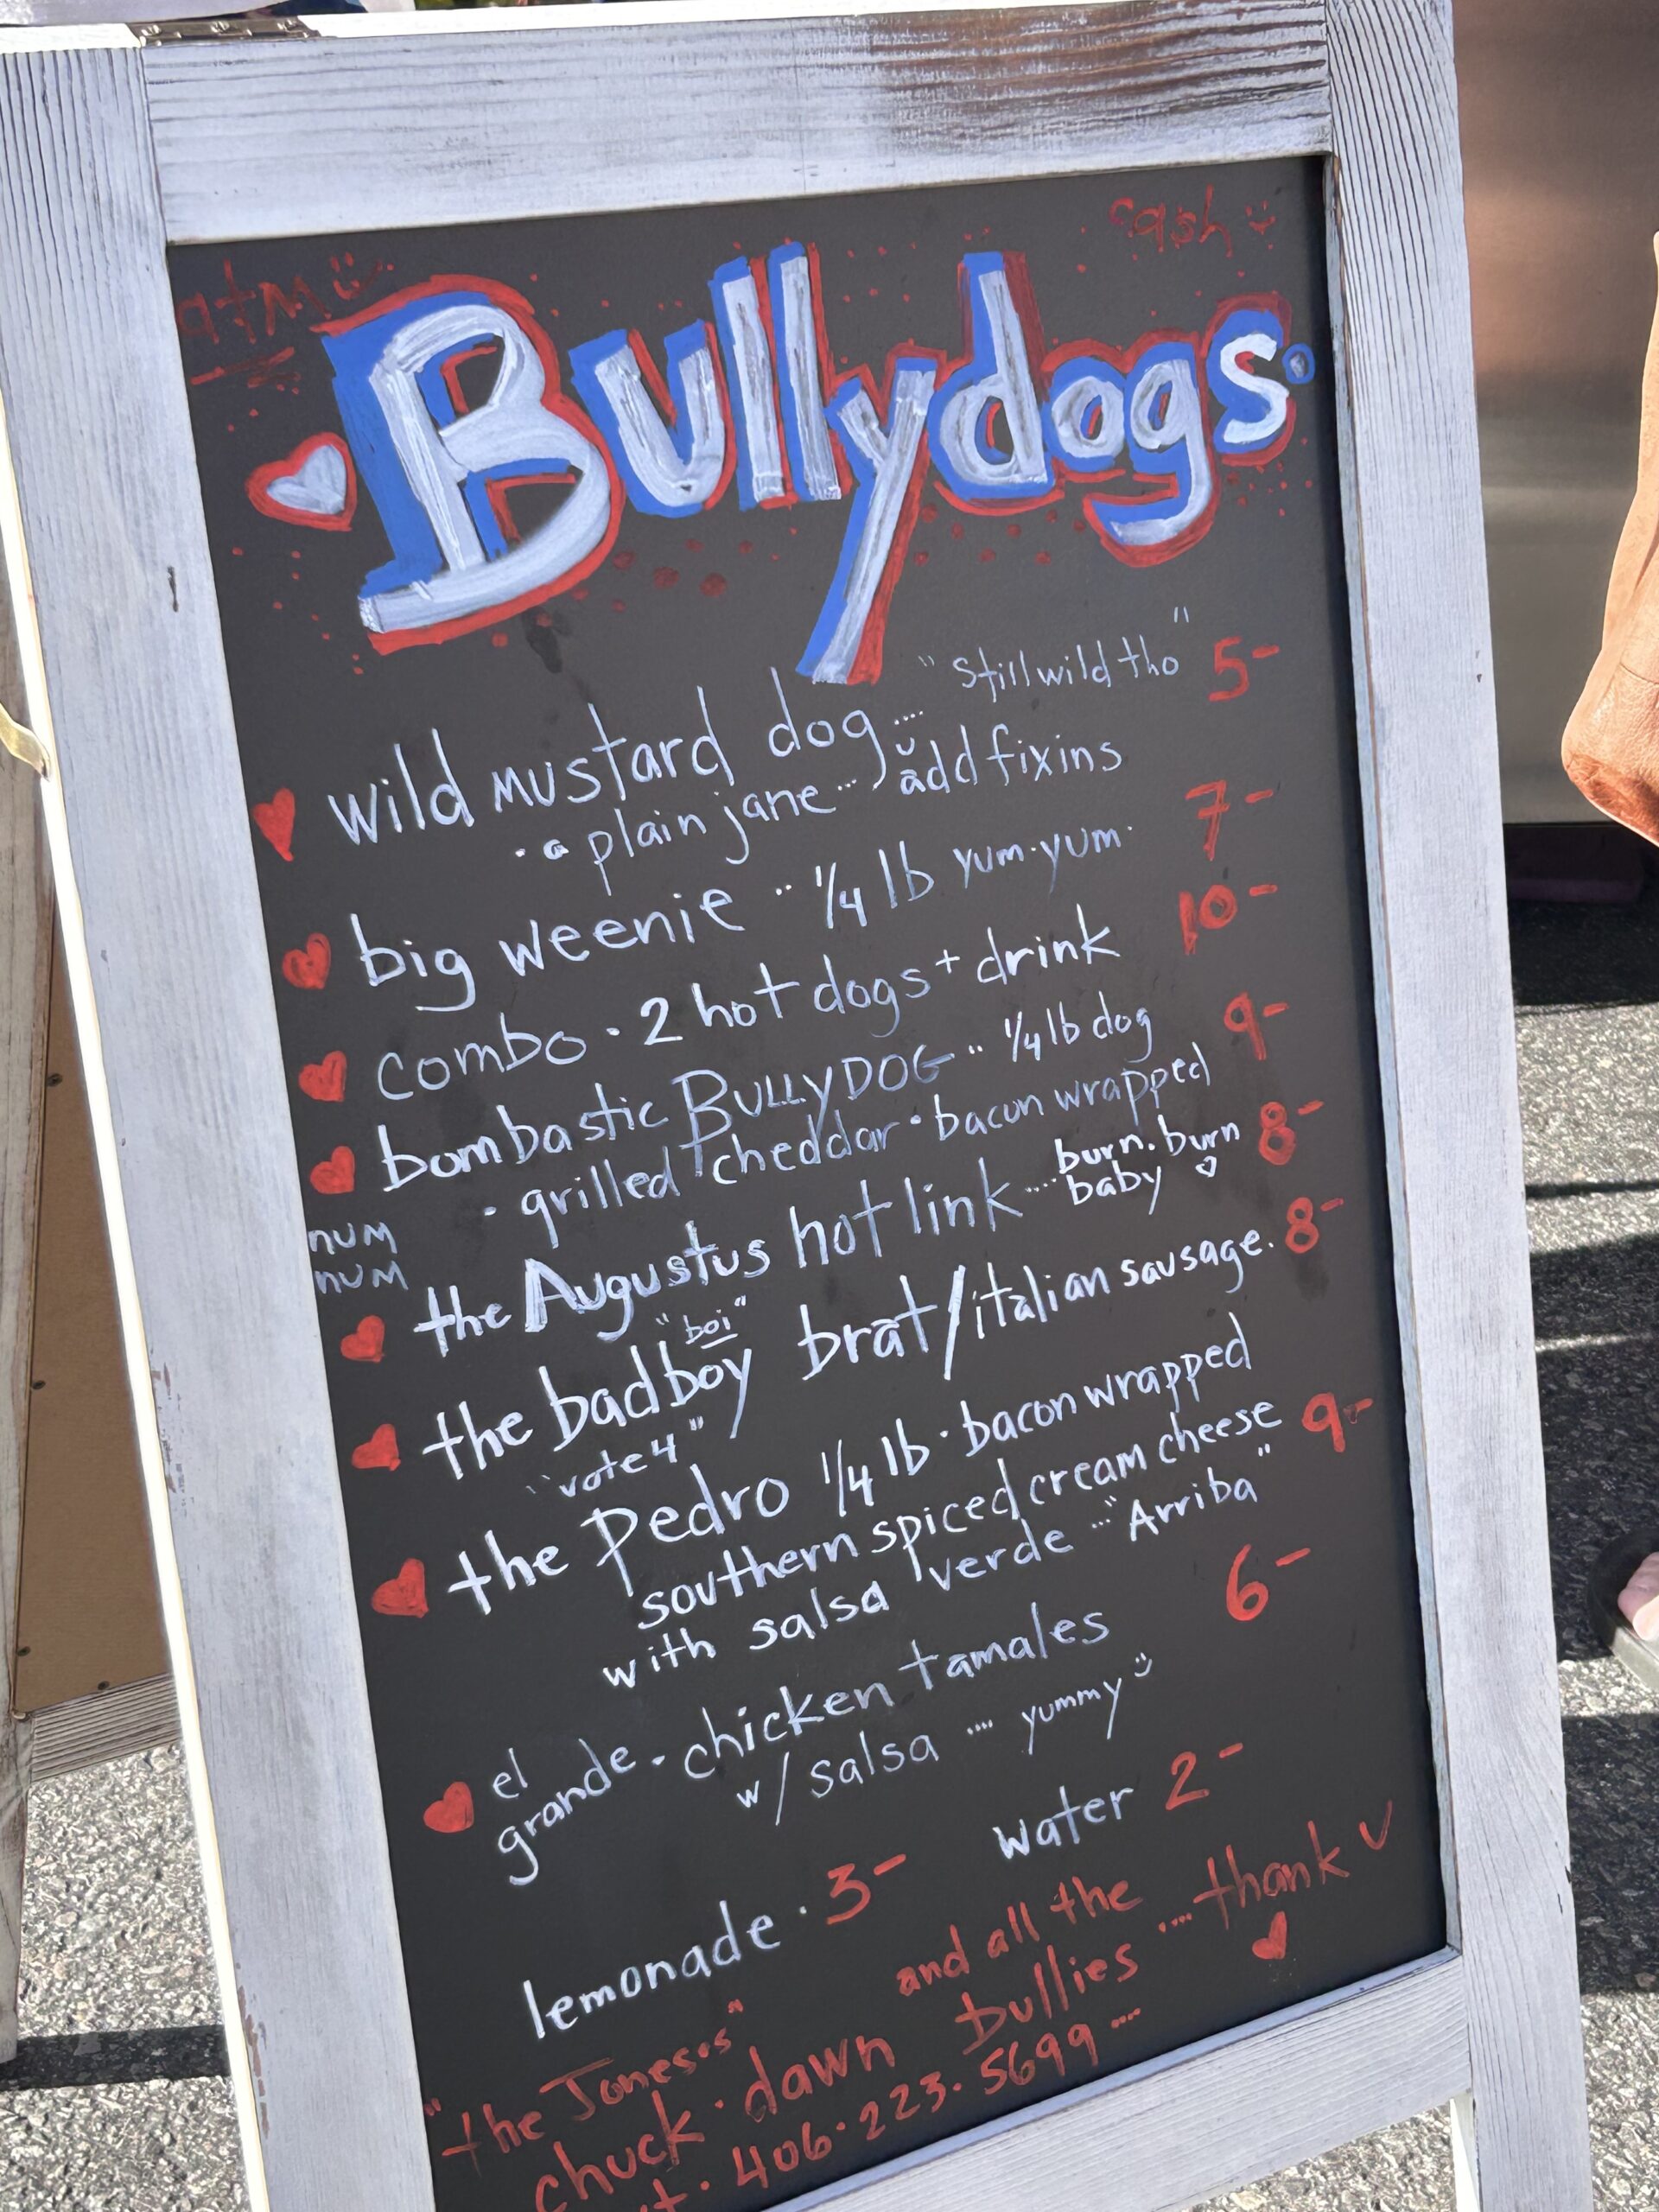 atm
cash
Bullydogs
wild mustard dog.... "still wild tho" 5-
• a plain jane... add fixins
big weenie .. 1/4 lb yum.yum. 7-
combo • 2 hot dogs + drink 10-
bombastic BULLYDOG .. 1/4 lb dog 9-
• grilled cheddar • bacon wrapped
num
num
the Augustus hot link.... burn.burn 8-
baby
"boi"
the badboy brat/italian sausage. 8-
"vote 4"
the Pedro 1/4 lb • bacon wrapped
southern spiced cream cheese 9-
with salsa verde ... "Arriba"
el
grande • chicken tamales 6-
w/ salsa .... yummy
water 2-
lemonade • 3-
"the Joneses" and all the
chuck • dawn bullies .... thank u
406•223•5699 ...